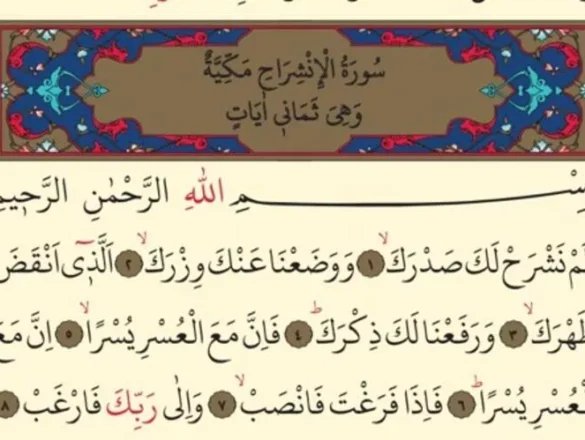 سُورَةُ الْاِنْشِرَاحِ مَكِّيَّةٌ
وَهِيَ ثَمَانِي اٰيَاتٍ
بِسْــــــمِ اللّٰهِ الرَّحْمٰنِ الرَّحٖيمِ
لَمْ نَشْرَحْ لَكَ صَدْرَكَۙ ﴿١﴾ وَوَضَعْنَا عَنْكَ وِزْرَكَۙ ﴿٢﴾ اَلَّذٖٓى اَنْقَضَ
ظَهْرَكَۙ ﴿٣﴾ وَرَفَعْنَا لَكَ ذِكْرَكَۜ ﴿٤﴾ فَاِنَّ مَعَ الْعُسْرِ يُسْرًاۙ ﴿٥﴾ اِنَّ مَعَ
الْعُسْرِ يُسْرًاۜ ﴿٦﴾ فَاِذَا فَرَغْتَ فَانْصَبْۙ ﴿٧﴾ وَاِلٰى رَبِّكَ فَارْغَبْ ﴿٨﴾